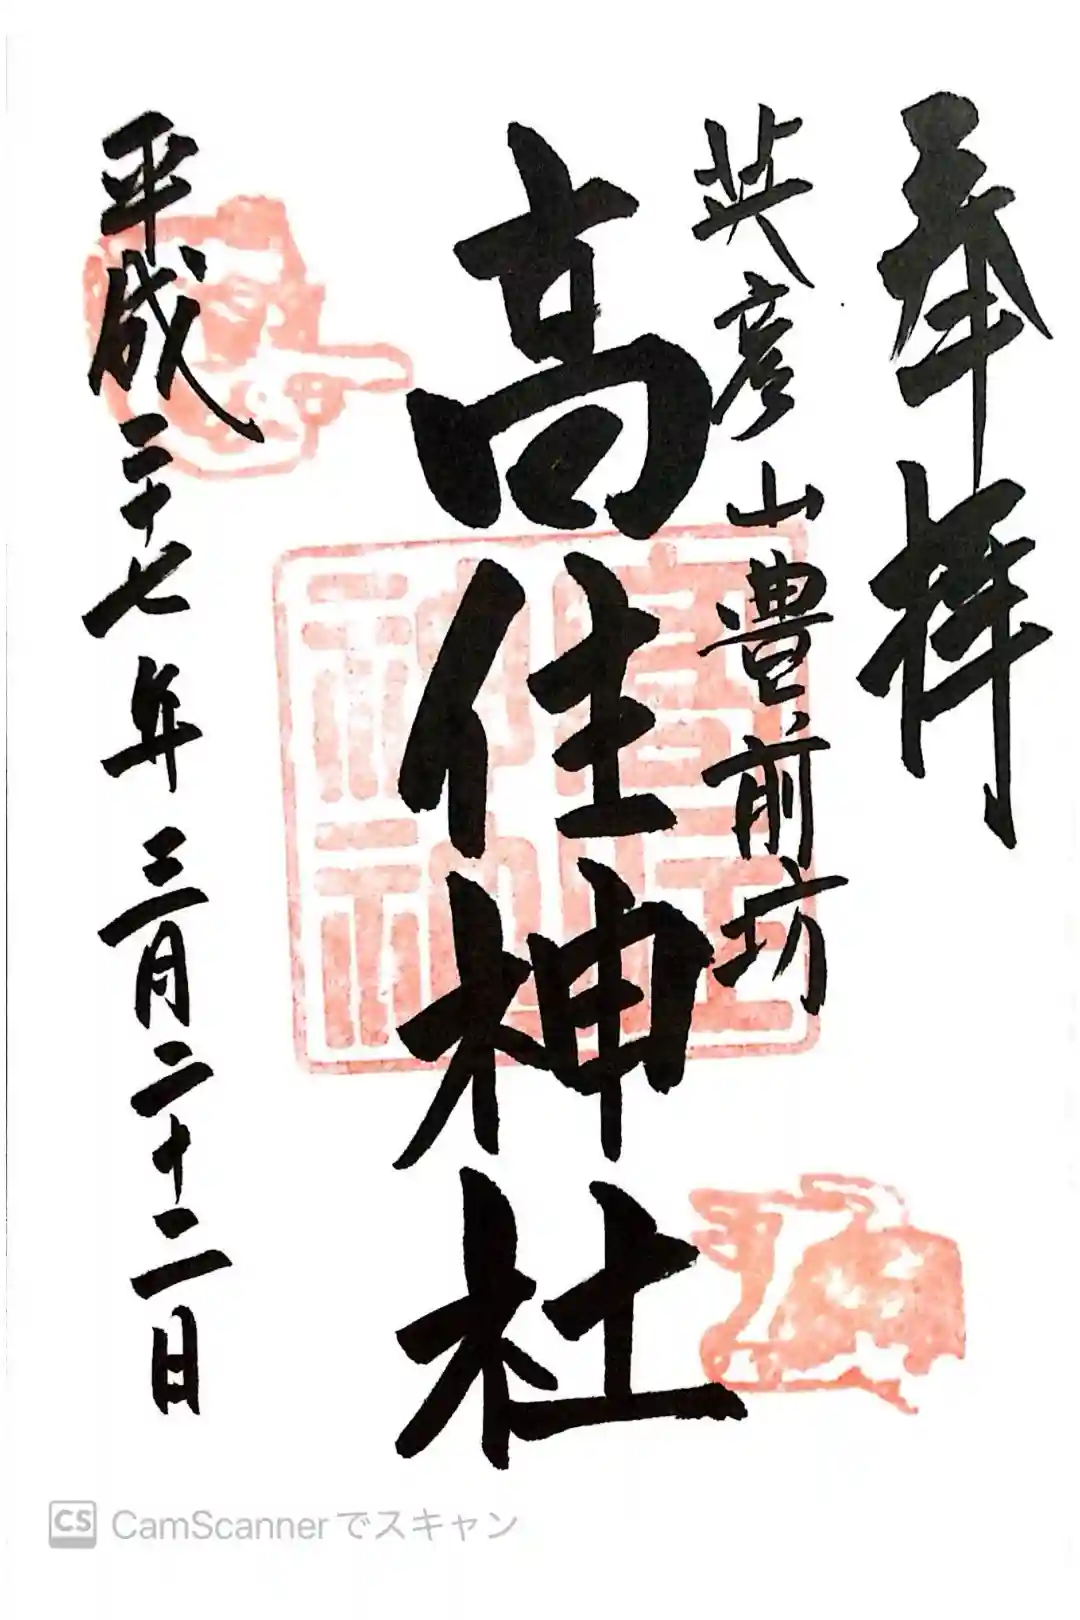 奉拝
英彦山豊前坊
高住神社
高住神社
平成二十七年三月二十二日
CS CamScannerでスキャン